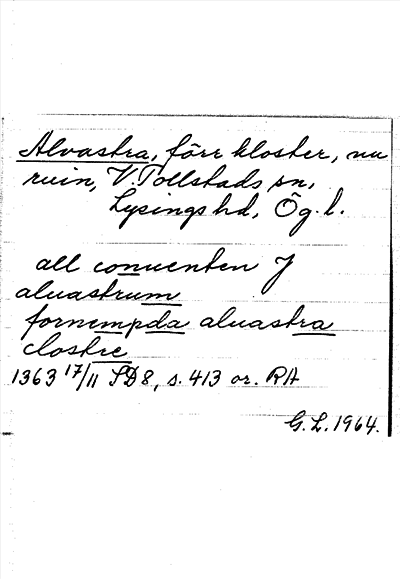 Alvastra, förr kloster, nu
ruin, V. Tollstads sn,
Lysings hd, Ög. l.
all conuenten J
aluastrum
fornempda aluastra
clostre
1363 17/11 SD 8, s. 413 or. RA
G. L. 1964.